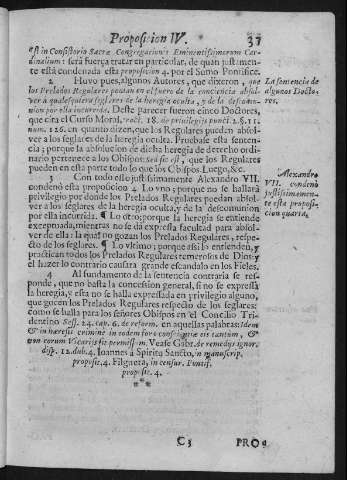 Proposicion IV. 37
est in Consistorio Sacræ Congregationis Eminentissimorum Car-
dinalium: será fuerça tratar en particular, de quan justamen-
te está condenada esta proposicion 4. por el Sumo Pontifice.
2 Huvo pues, algunos Autores, que dixeron, que
los Prelados Regulares podian en el fuero de la conciencia absol-
ver a qualesquiera seglares de la heregia oculta, y de la descomu-
nion por ella incurrida. Deste parecer fueron cinco Doctores,
que cita el Curso Moral, tract. 18. de privilegijs punct. 2. §. 11.
num. 126. en quanto dizen, que los Regulares pueden absol-
ver a los seglares de la heregia oculta. Pruebase esta senten-
cia; porque la absolucion de dicha heregia de derecho ordi-
nario pertenece a los Obispos: Sed sic est, que los Regulares
pueden en esta parte todo lo que los Obispos. Luego, &c.
La sentencia de
algunos Docto-
res.
3 Con todo esso justissimamente Alexandro VII.
condenó esta proposicion 4. Lo vno; porque no se hallará
privilegio por donde los Prelados Regulares puedan absol-
ver a los seglares de la heregia oculta, y de la descomunion
por ella incurrida. ¶ Lo otro; porque la heregia se entiende
exceptuada, mientras no se dá expressa facultad para absol-
ver de ella: la qual no gozan los Prelados Regulares, respe-
cto de los seglares. ¶ Lo vltimo; porque assi lo entienden, y
practican todos los Prelados Regulares temerosos de Dios: y
el hazer lo contrario causara grande escandalo en los Fieles,
Alexandro
VII. condenò
justissimamen-
te esta proposi-
cion quarta.
4 Al fundamento de la sentencia contraria se res-
ponde, que no basta la concession general, si no se expressa
la heregia, y esta no se halla expressada en privilegio alguno,
que gozen los Prelados Regulares respecto de los seglares:
como se halla para los señores Obispos en el Concilio Tri-
dentino Sess. 24. cap. 6. de reform. en aquellas palabras: Idem
& in hæresis crimine in eodem foro conscientiæ eis tantum, &
non eorum Vicarijs sit permissum. Vease Gabr. de remedijs ignor.
disp. 12. dub. 4. Ioannes à Spiritu Sancto, in manuscrip.
proposit. 4. Filgueira, in censur. Pontif.
proposit. 4.
C3 PRO-